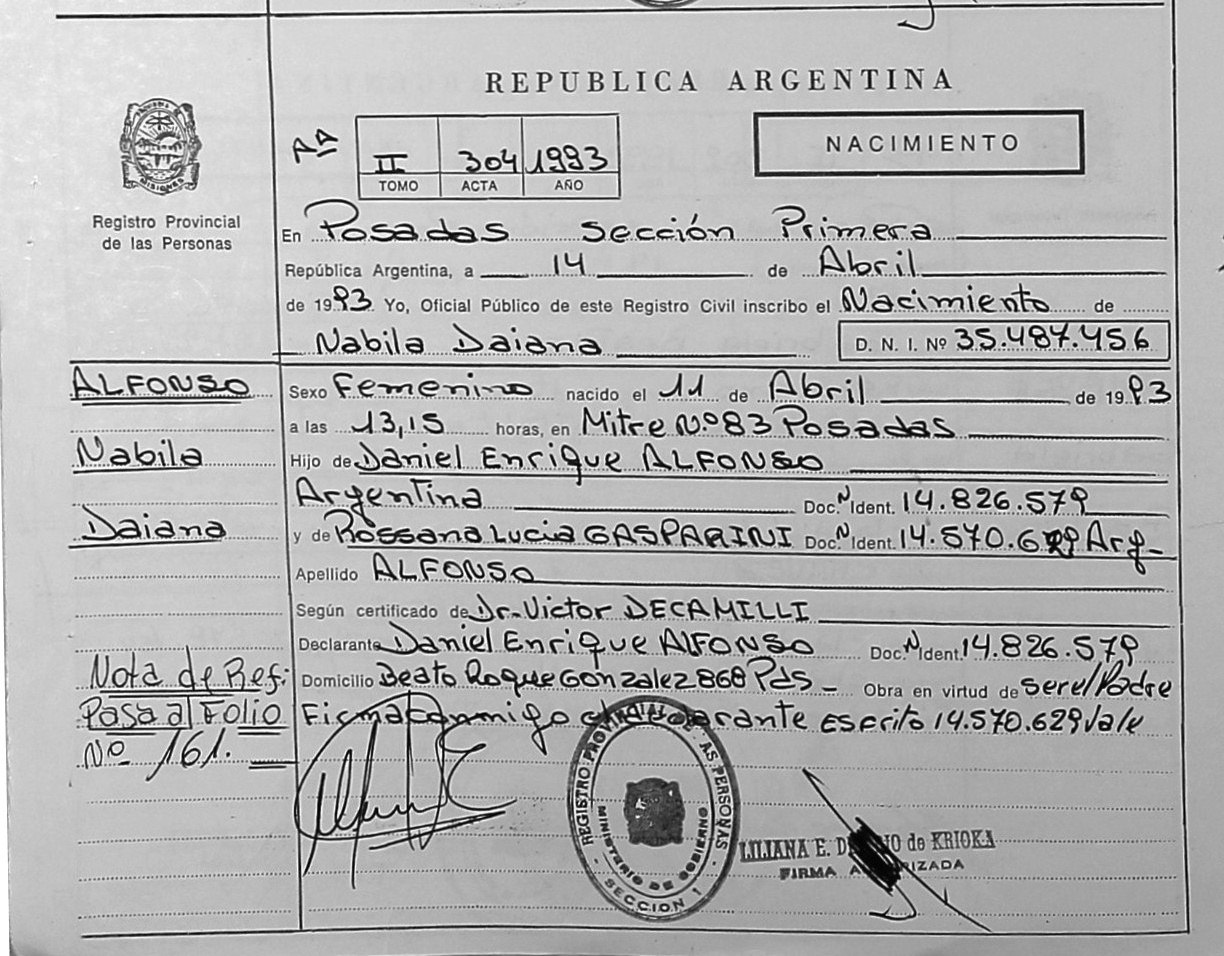 REPUBLICA ARGENTINA
MISIONES
Registro Provincial
de las Personas
AA
II 304 1993
TOMO ACTA AÑO
NACIMIENTO
En Posadas Sección Primera
República Argentina, a 14 de Abril
de 1993 Yo, Oficial Público de este Registro Civil inscribo el Nacimiento de
Nabila Daiana D. N. I. Nº 35.487.456
ALFONSO
Nabila
Daiana
Sexo Femenino nacido el 11 de Abril de 1993
a las 13,15 horas, en Mitre Nº 83 Posadas
Hijo de Daniel Enrique ALFONSO
Argentina Doc. N Ident. 14.826.579
y de Rossana Lucia GASPARINI Doc. N Ident. 14.570.629 Arg-
Apellido ALFONSO
Según certificado de Dr. Victor DECAMILLI
Declarante Daniel Enrique ALFONSO Doc. N Ident. 14.826.579
Domicilio Beato Roque Gonzalez 868 Pds - Obra en virtud de ser el Padre
Firma conmigo el declarante Escrito 14.570.629 Vale
Nota de Ref:
Pasa al Folio
Nº 161.
REGISTRO PROVINCIAL DE LAS PERSONAS
MINISTERIO DE GOBIERNO
SECCION 1
LILIANA E. de KRIOKA
FIRMA AUTORIZADA